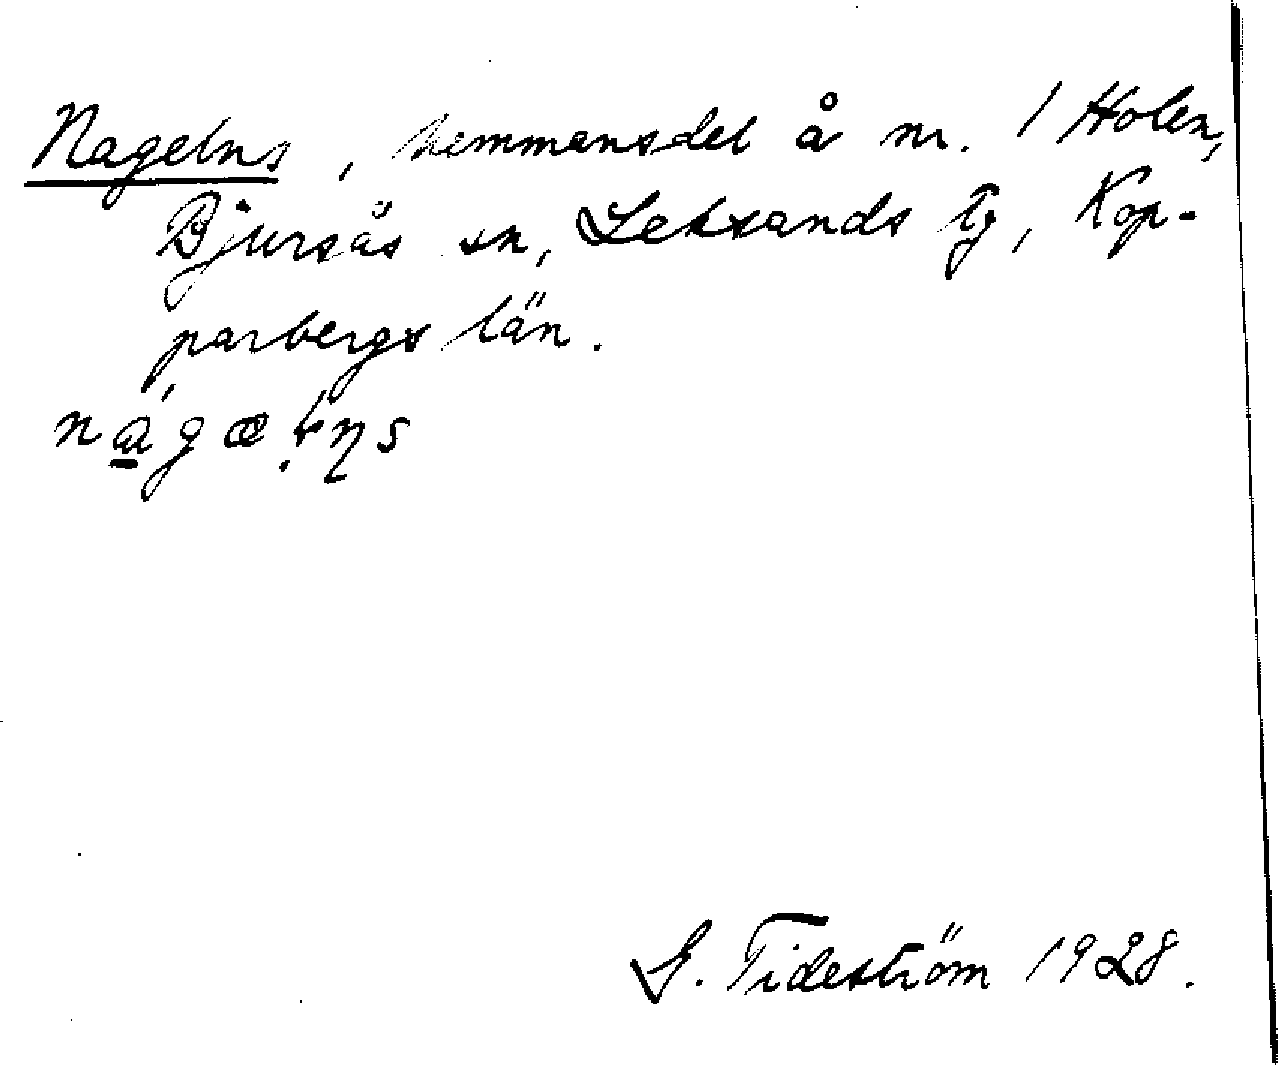 Nagelns, hemmansdel å nr. 1 Holen,
Bjursås sn, Leksands tg, Kop-
parbergs län.
G. Tideström 1928.